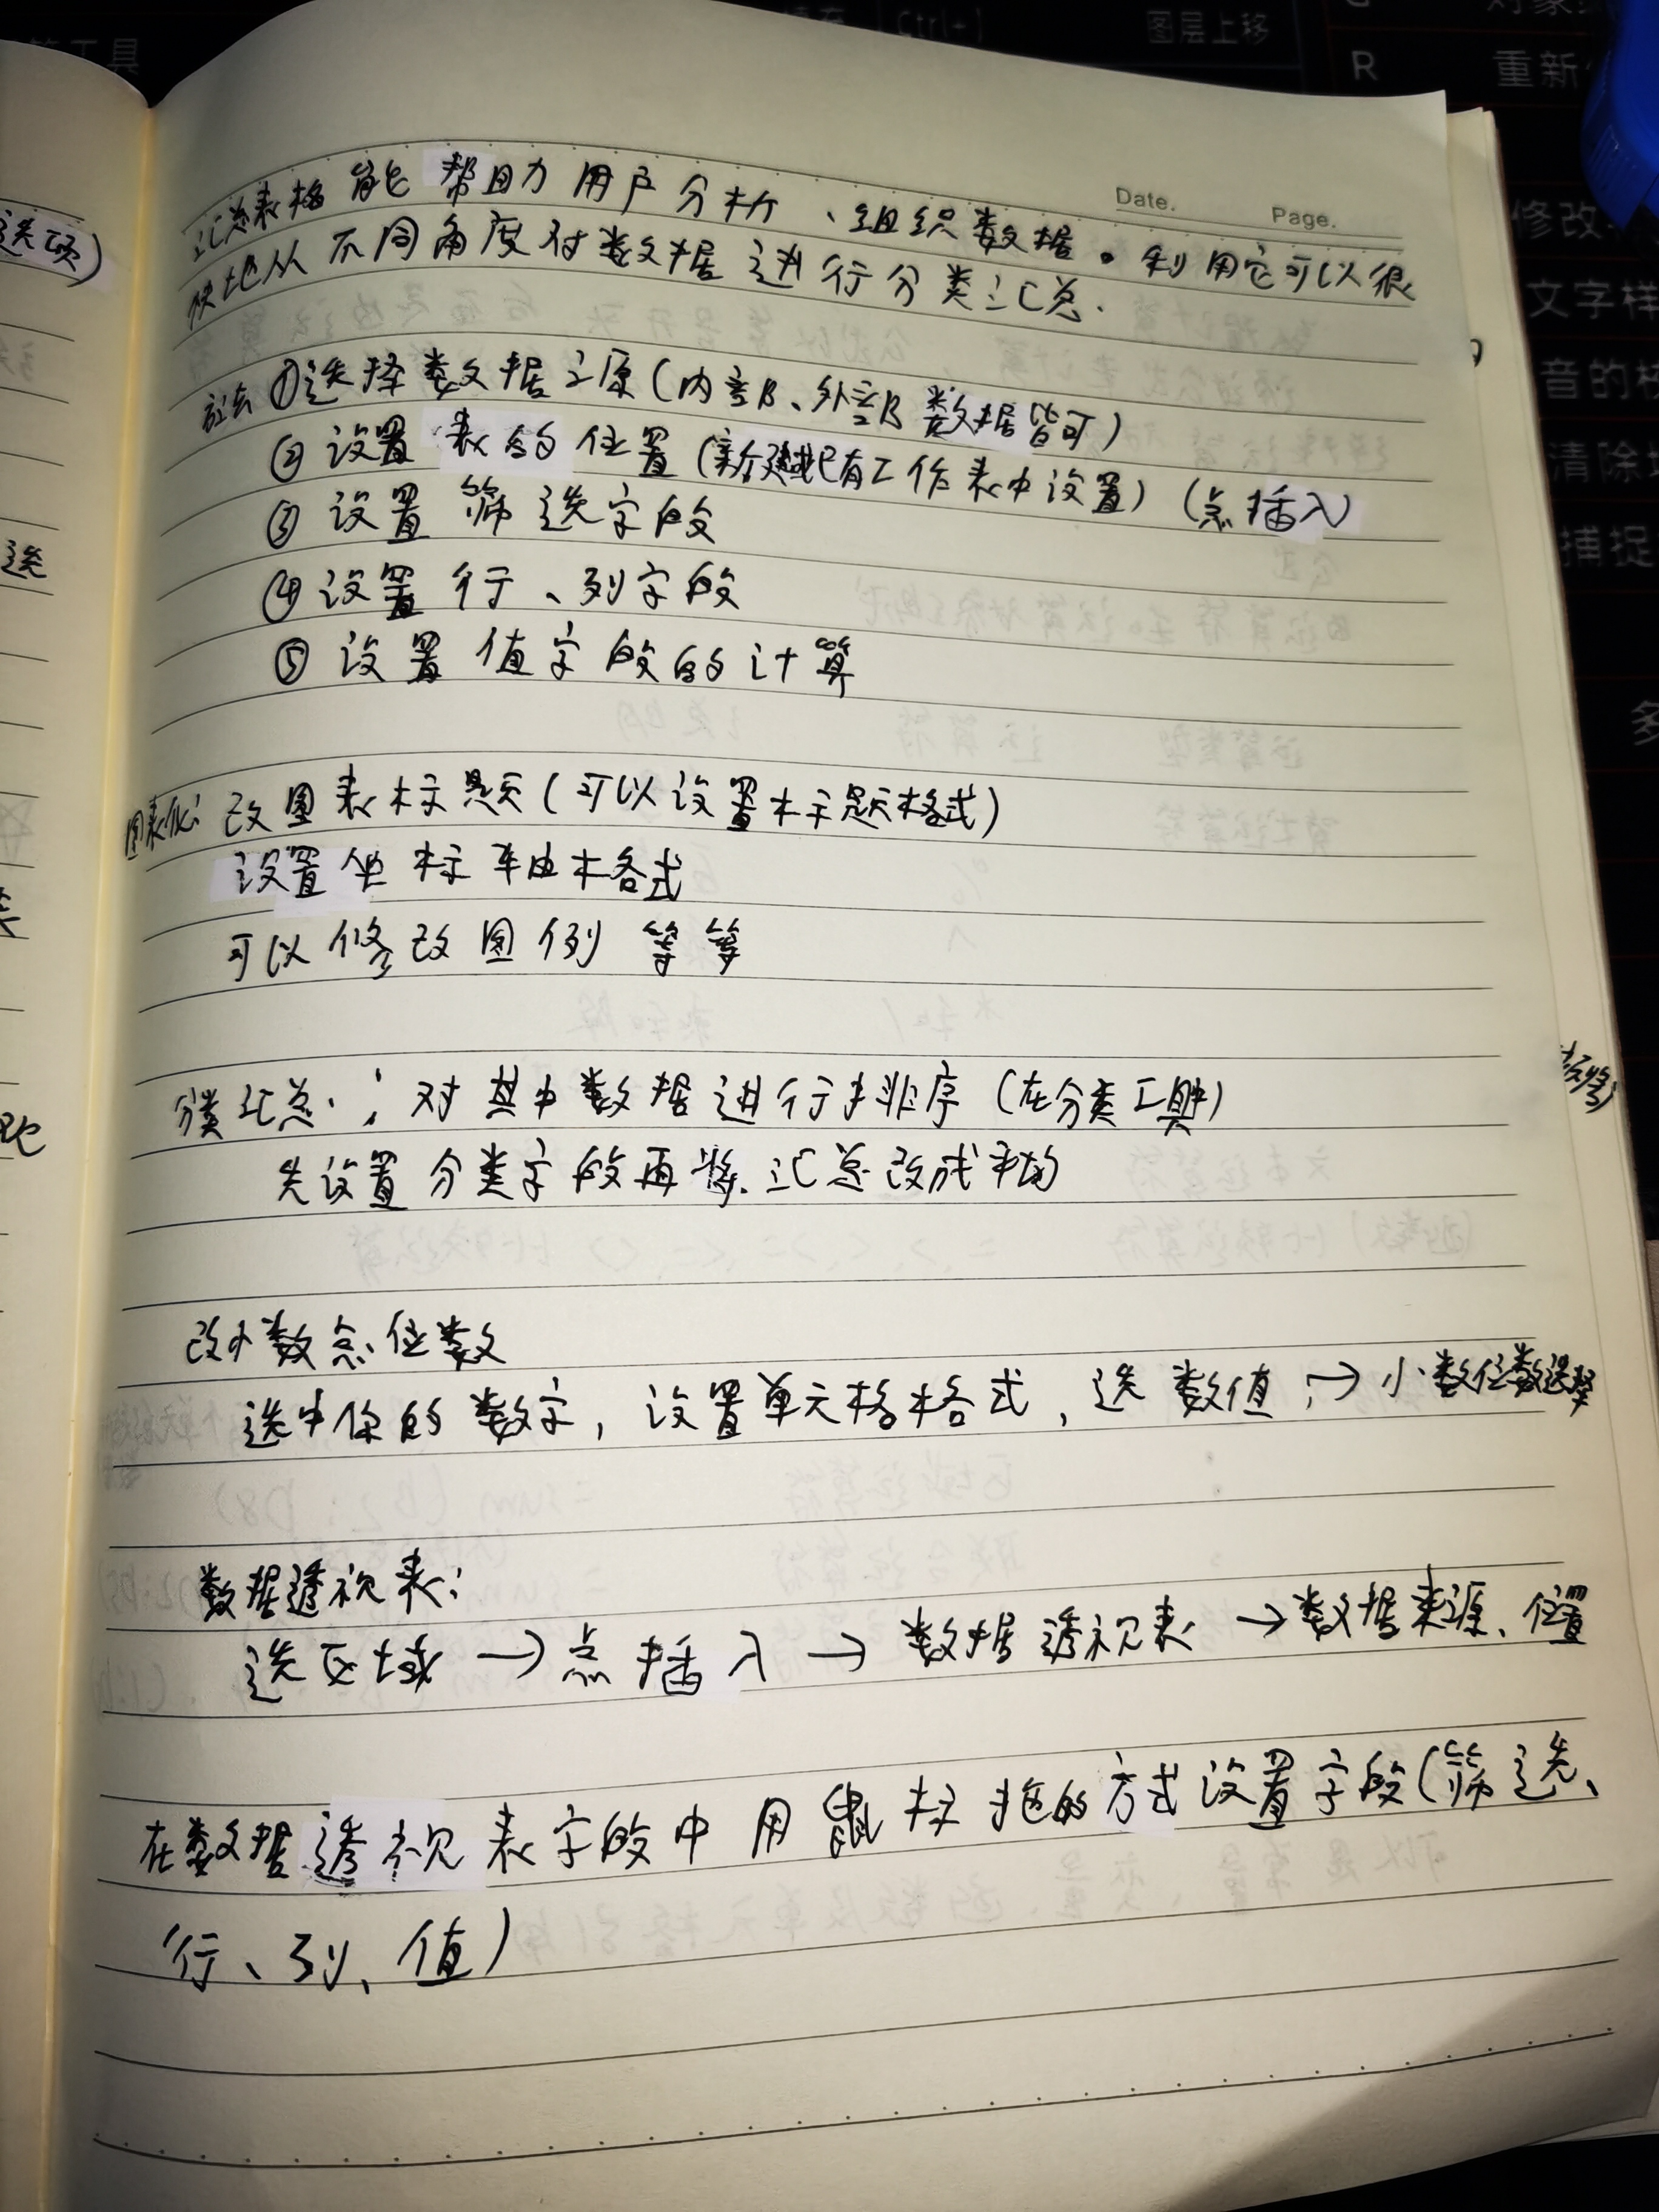 Date. Page.
汇总表格能帮助用户分析、组织数据。利用它可以很
快地从不同角度对数据进行分类汇总.
方法①选择数据之源(内部、外部数据皆可)
②设置表的位置(新建或已有工作表中设置)(点插入)
③设置筛选字段
④设置行、列字段
⑤设置值字段的计算
图表化:改图表标题(可以设置标题格式)
设置坐标轴格式
可以修改图例等等
分类汇总:对其中数据进行排序(在分类工具)
先设置分类字段再将汇总改成平均
改小数点位数
选中你的数字,设置单元格格式,选数值,→小数位数选择
数据透视表:
选区域→点插入→数据透视表→数据来源、位置
在数据透视表字段中用鼠标拖的方式设置字段(筛选、
行、列、值)
选项)
选
工具
图层上移
R
重新
修改
文字样
音的
清除
捕捉
多